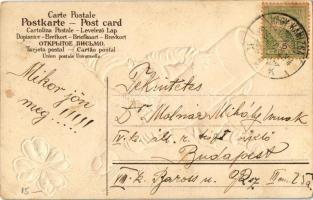 Carte Postale
Postkarte – Post card
Cartolina Postale - Levelező Lap
Dopisnice - Brefkort - Briefkaart - Brevkort
ОТКРЫТОЕ ПИСЬМО.
Tarjeta postal — Cartão postal
Union postale Universelle.
Mikor jön
meg !!!!!
Tekintetes
Dr Molnar Mihály úrnak
IV. k. áll. f.
Budapest
VIII. k. Baross u.
15